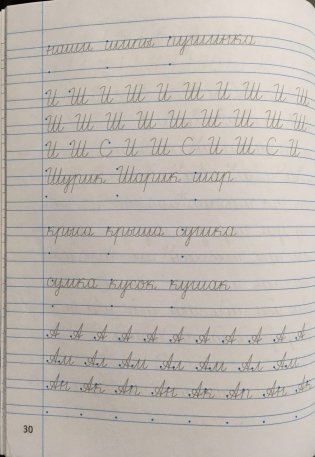 наши шипы пушинка
И Ш И Ш И Ш И Ш И Ш
Ш Ш Ш Ш Ш Ш Ш Ш Ш
И Ш С И Ш С И Ш С И
Шурик Шарик шар
крыса крыша сушка
сумка кусок кушак
А А А А А А А А А А А
Ам Ал Ам Ал Ам Ал Ам
Ан Ак Ап Ан Ак Ап Ан Ак
30